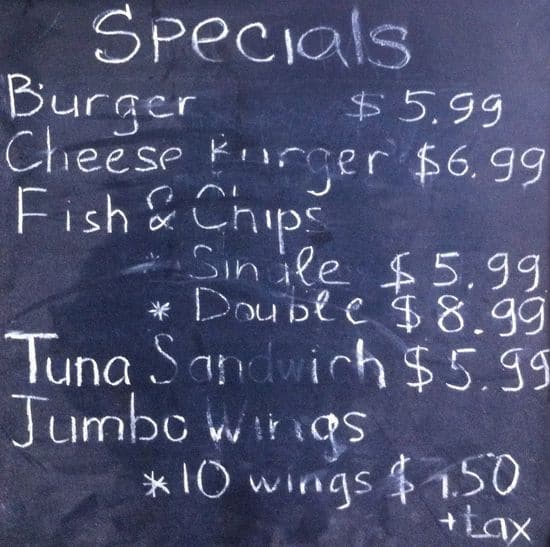 Specials
Burger $5.99
Cheese Burger $6.99
Fish & Chips
* Single $5.99
* Double $8.99
Tuna Sandwich $5.99
Jumbo Wings
*10 wings
+tax